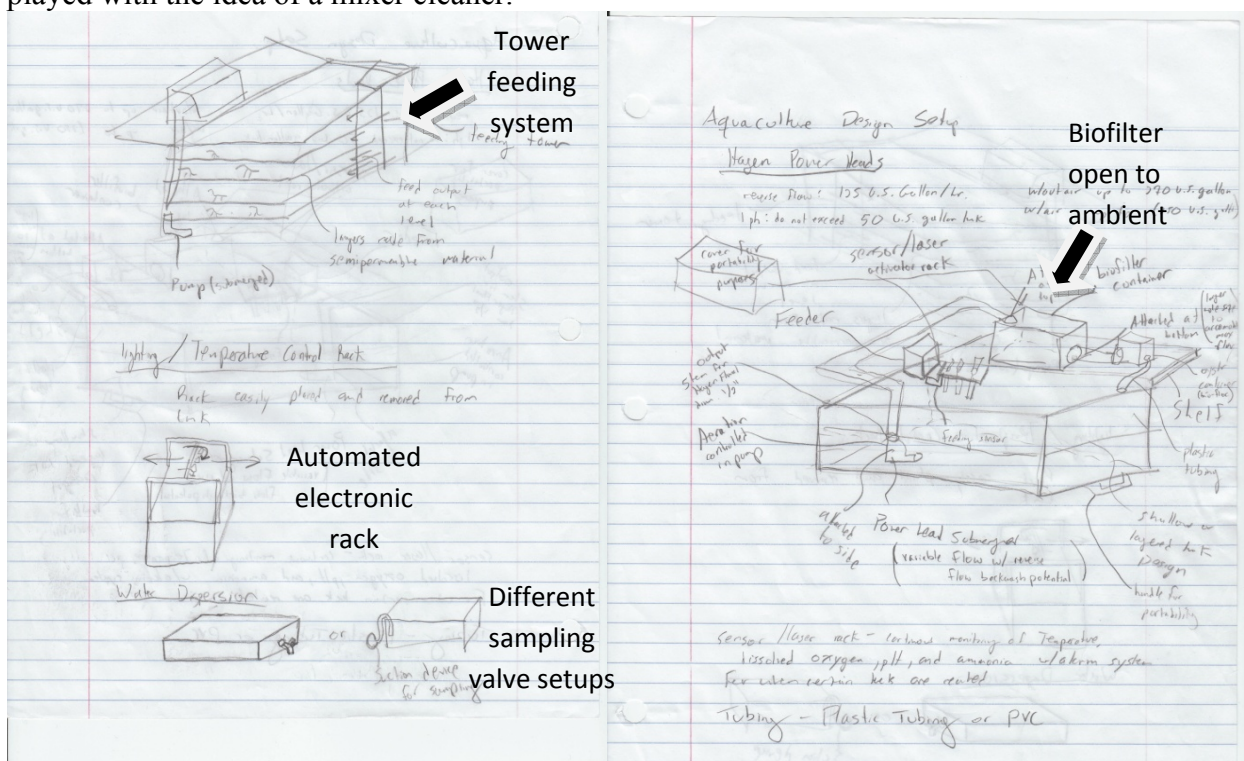 played with the idea of a mixer cleaner.
Tower
feeding
system
feeding tower
feed output
at each
level
layers made from
semipermeable material
Pump (submerged)
lighting / Temperature Control Rack
Rack easily placed and removed from
tank
Automated
electronic
rack
Water Dispersion
or
Suction device
for sampling
Different
sampling
valve setups
Aquaculture Design Setup
Hagen Power Heads
reverse flow: 125 U.S. Gallon/hr.
1 ph: do not exceed 50 U.S. gallon tank
w/out air up to 270 U.S. gallon
w/air
Biofilter
open to
ambient
cover for
portability
purposes
sensor/laser
activator rack
biofilter
container
Feeder
Attached at
bottom
output
stem for
Shelf
Aeration
controlled
in pump
feeding sensor
plastic
tubing
attached
to side
Power head submerged
(variable flow w/ reverse
flow backwash potential)
shallow or
layered tank
Design
handle for
portability
sensor/laser rack - continous monitoring of Temperature,
dissolved oxygen, pH, and ammonia w/alarm system
for when certain
Tubing - Plastic Tubing or PVC